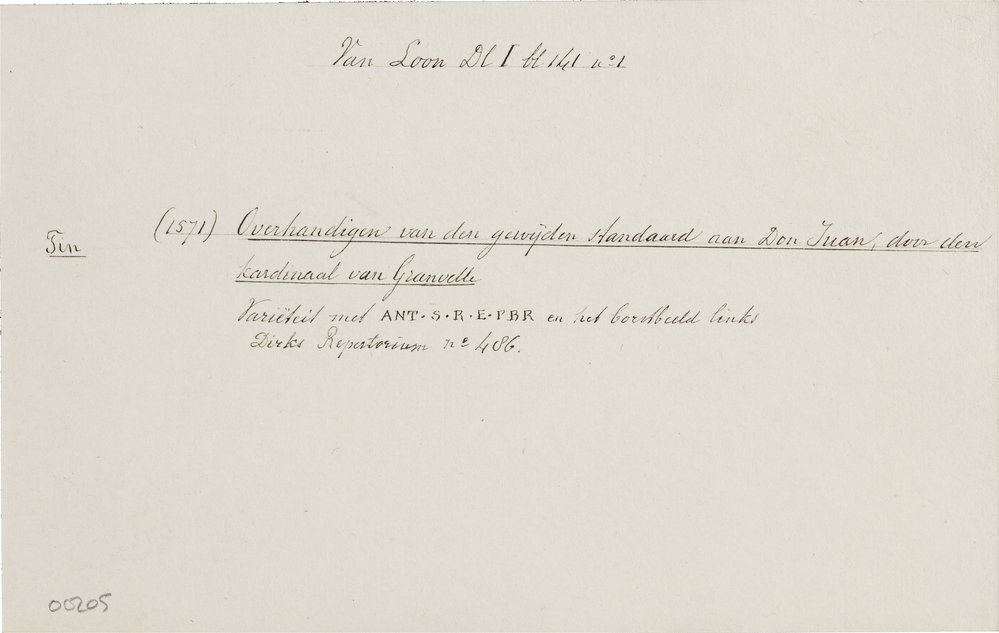 Van Loon Dl I bl 141 no 1
(1571) Overhandigen van den gewijden standaard aan Don Juan, door den
Tin
kardinaal van Granvelle
Variëteit met ANT·S·R·E·PBR en het borstbeeld links
Dirks Repertorium no 486.
00205